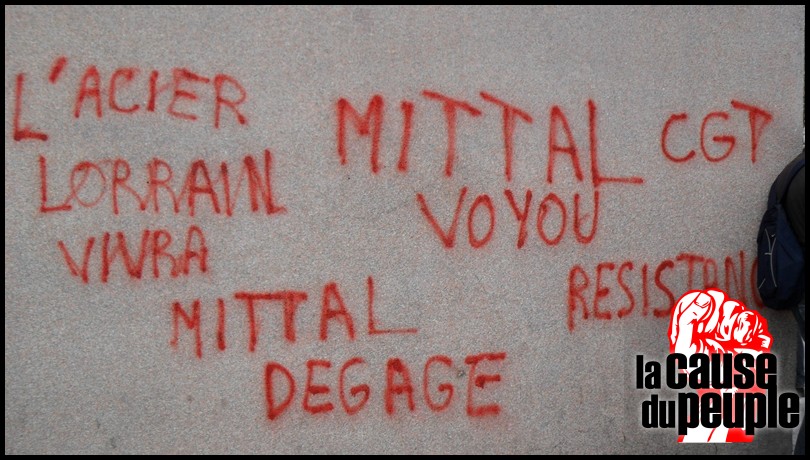 L'ACIER
LORRAIN
VIVRA
MITTAL
VOYOU
CGT
MITTAL
DEGAGE
RESISTANC
la cause
du peuple